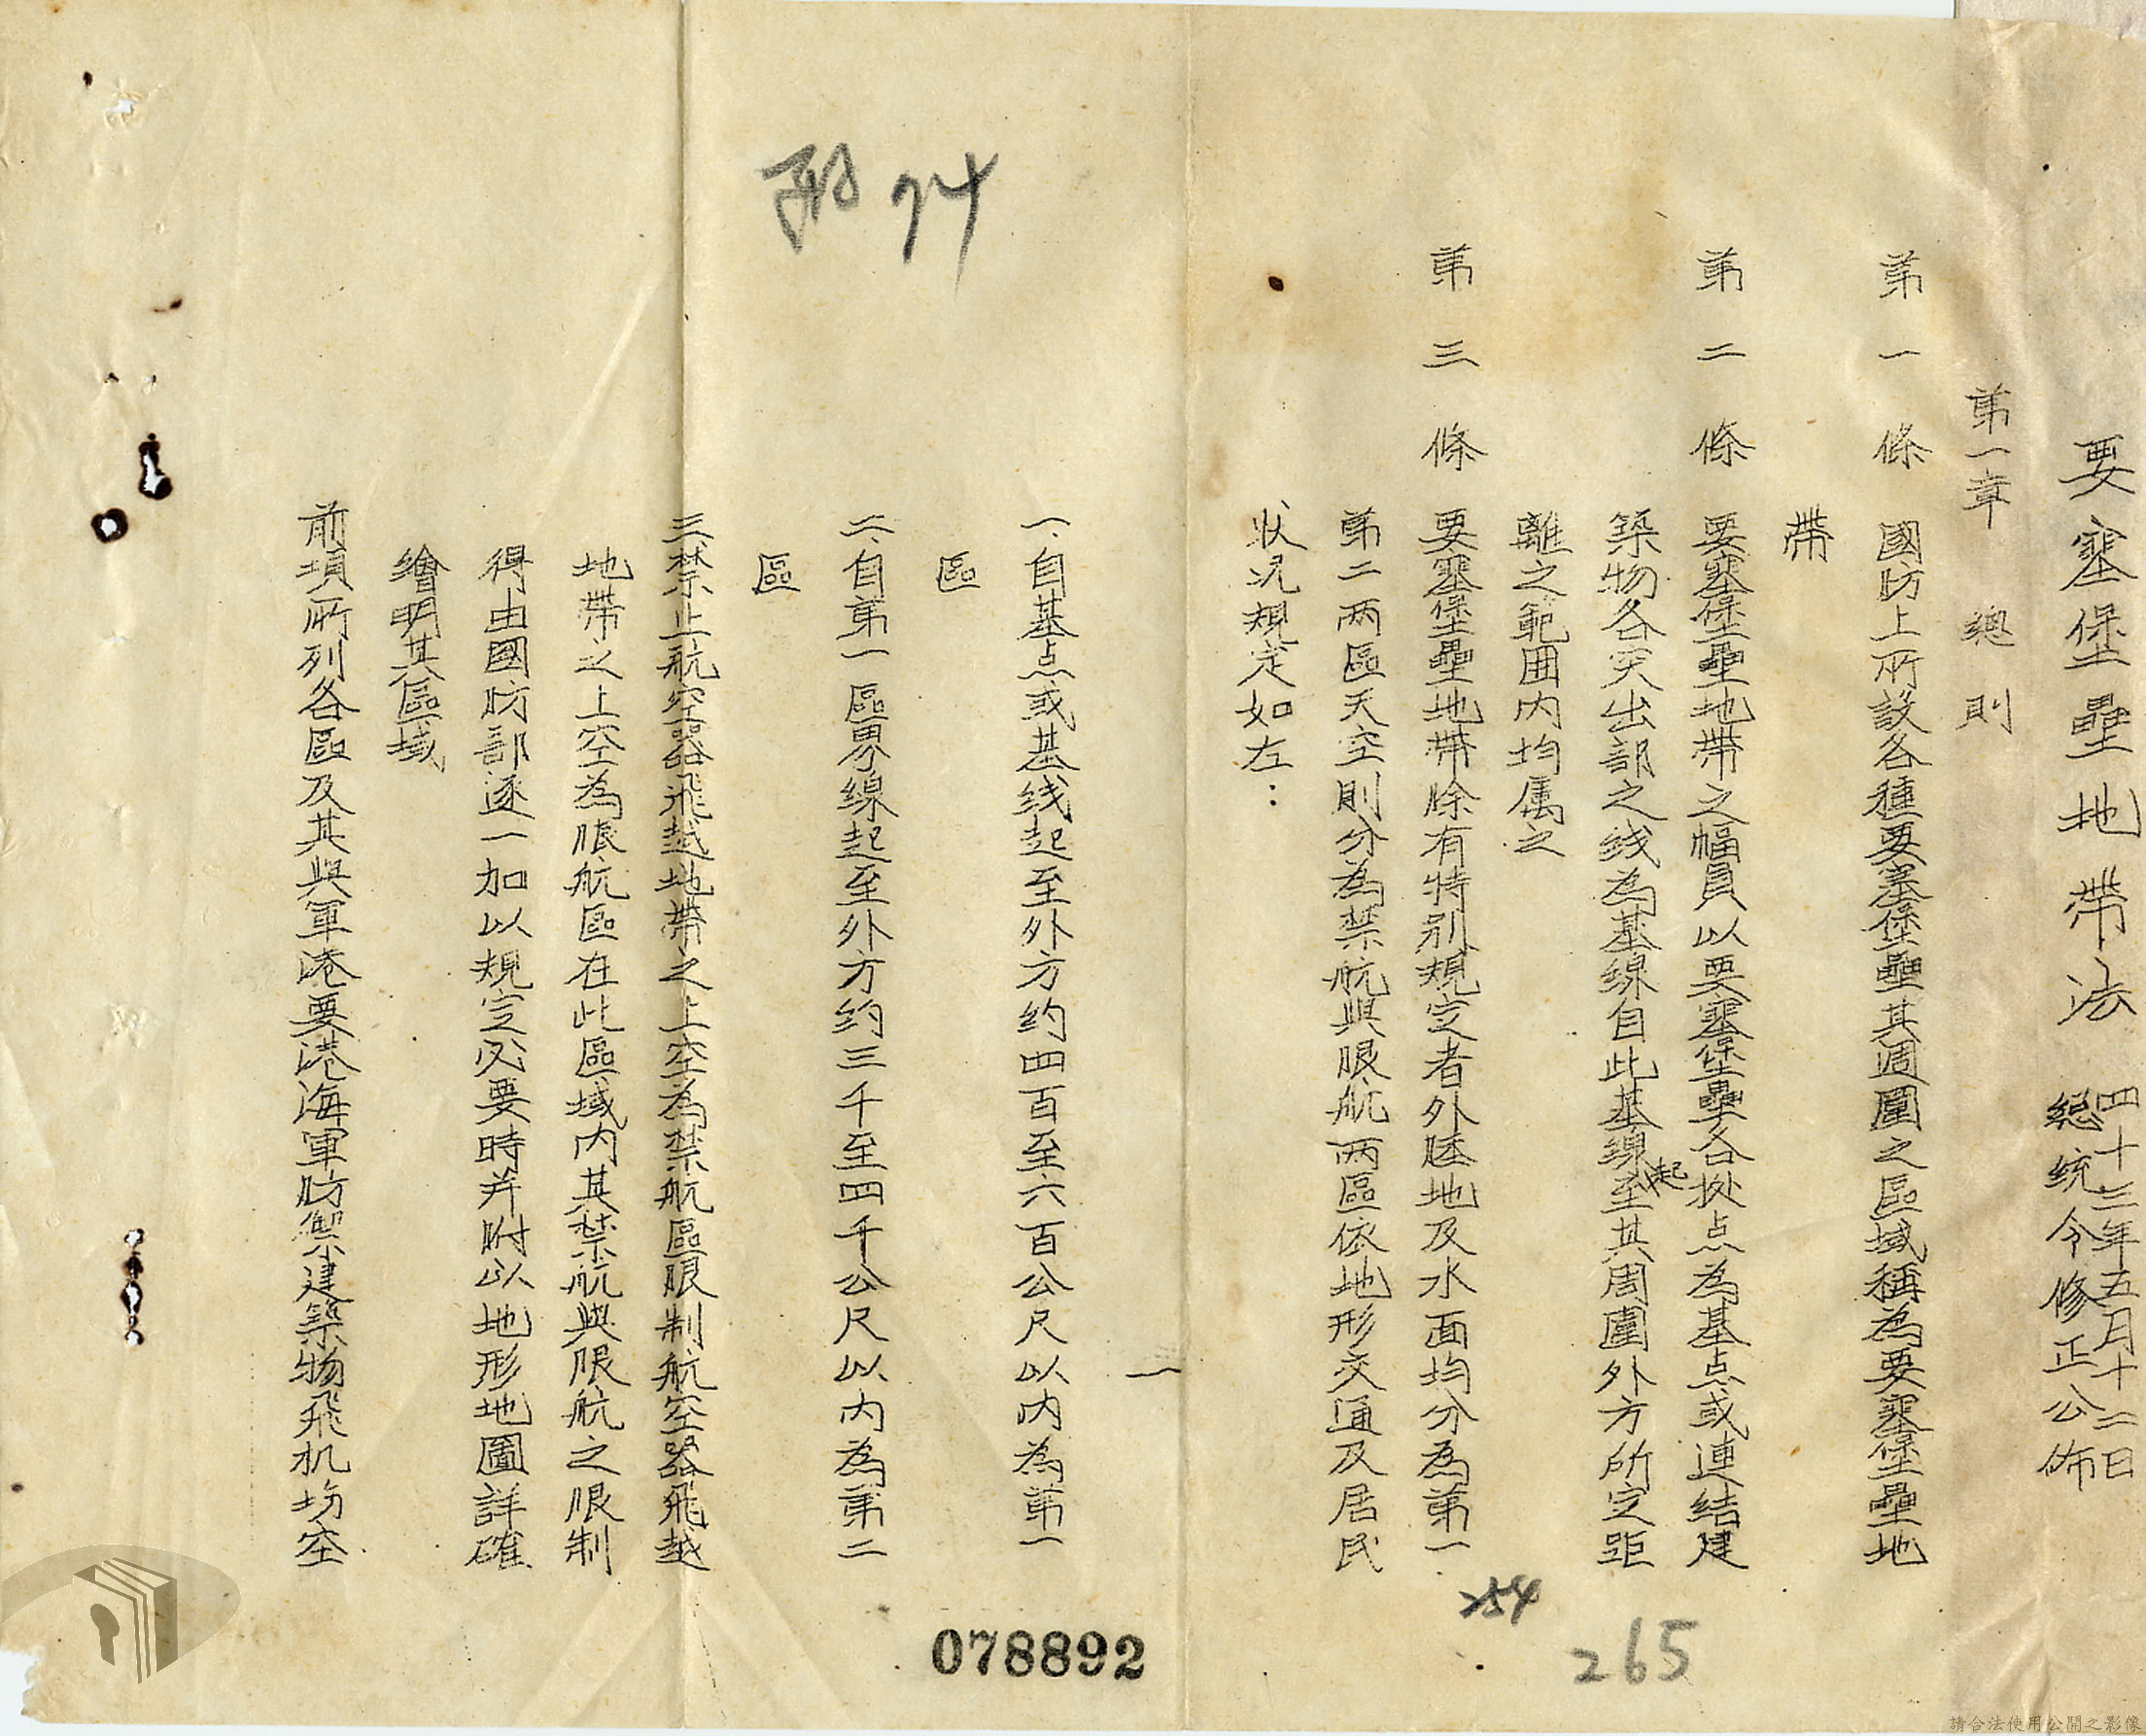 要塞堡壘地帶法
四十三年五月十二日
總統令修正公佈
第一章 總則
第一條 國防上所設各種要塞堡壘其週圍之區域稱為要塞堡壘地
帶
第二條 要塞堡壘地帶之幅員以要塞堡壘各拠点為基点或連结建
築物各突出部之线為基線自此基線起至其周圍外方所定距
離之範囲内均属之
第三條 要塞堡壘地帶除有特别規定者外陸地及水面均分為第一
第二两區天空則分為禁航與限航两區依地形交通及居民
状况規定如左：
一
一、自基点或基线起至外方约四百至六百公尺以内為第一
區
二、自第一區界線起至外方约三千至四千公尺以内為第二
區
三、禁止航空器飛越地帶之上空為禁航區限制航空器飛越
地帶之上空為限航區在此區域内其禁航與限航之限制
得由國防部逐一加以規定必要時并附以地形地圖詳確
繪明其區域
前項所列各區及其與軍港要港海軍防禦建築物飛机场空
74
254
265
078892
請合法使用公開之影像